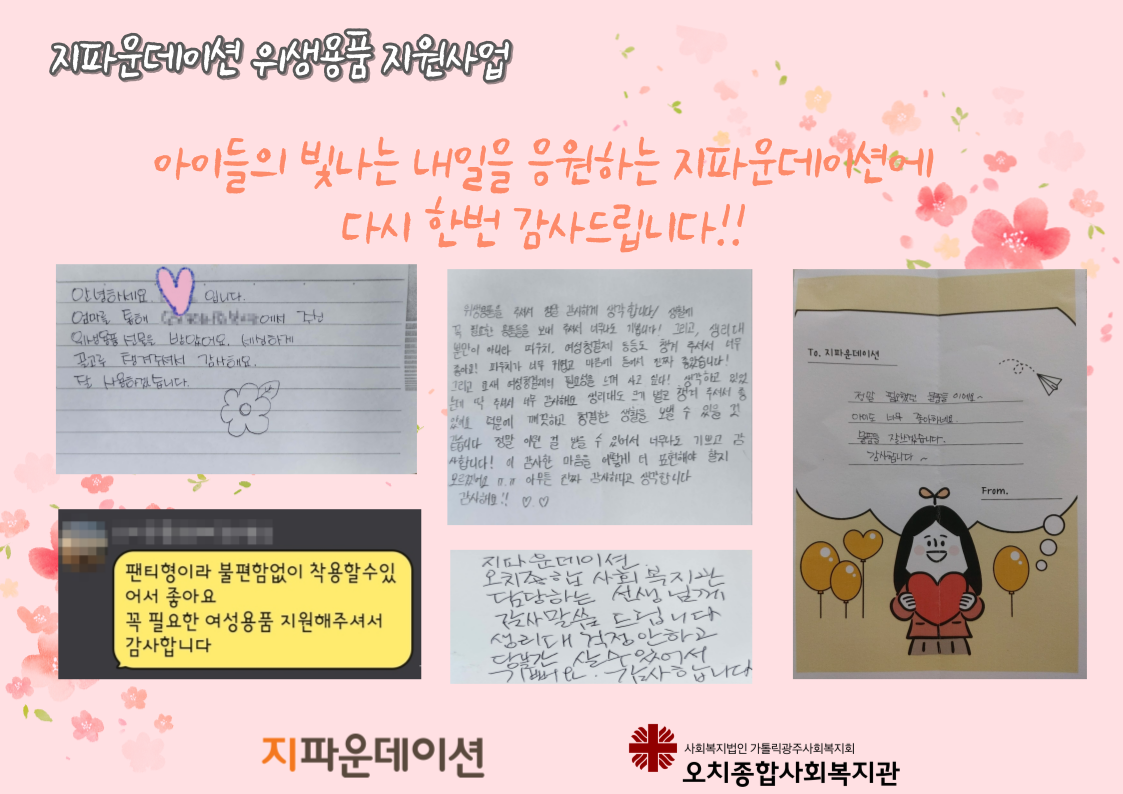 지파운데이션 위생용품 지원사업
아이들의 빛나는 내일을 응원하는 지파운데이션에
다시 한번 감사드립니다!!
안녕하세요 입니다.
엄마를 통해 에서 주신
위생용품 선물을 받았어요. 세심하게
골고루 챙겨주셔서 감사해요.
잘 사용하겠습니다.
위생용품을 주셔서 정말 감사하게 생각합니다! 생활에
꼭 필요한 용품들을 보내 주셔서 너무나도 기쁩니다! 그리고, 생리대
뿐만이 아니라 파우치, 여성청결제 등등도 챙겨 주셔서 너무
좋아요! 파우치가 너무 귀엽고 마음에 들어서 진짜 좋았습니다!
그리고 요새 여성청결제의 필요성을 느껴 사고 싶다! 생각하고 있었
는데 딱 주셔서 너무 감사해요 생리대도 크게 넓고 챙겨 주셔서 좋
았어요 덕분에 깨끗하고 청결한 생활을 보낼 수 있을 것
같습니다 정말 이런 걸 받을 수 있어서 너무나도 기쁘고 감
사합니다! 이 감사한 마음을 어떻게 더 표현해야 할지
모르겠어요 ㅠ.ㅠ 아무튼 진짜 감사하다고 생각합니다
감사해요!! ♡.♡
To. 지파운데이션
정말 필요했던 물품들 이에요~
아이도 너무 좋아하네요.
물품들 잘 받았습니다.
감사합니다 ~
From.
팬티형이라 불편함없이 착용할수있
어서 좋아요
꼭 필요한 여성용품 지원해주셔서
감사합니다
지파운데이션.
오치종합 사회복지관
담당하는 선생님께
감사말씀 드립니다
생리대 걱정안하고
당분간 살수있어서
기뻐요. 감사합니다
지파운데이션
사회복지법인 가톨릭광주사회복지회
오치종합사회복지관